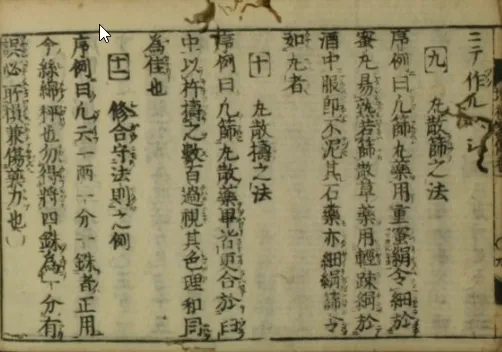 ニテ作丸
九 丸散篩之法
序例曰凡篩丸藥用重蜜絹令細於
蜜丸易熟若篩散草藥用輕踈絹於
酒中服即不泥其石藥亦細絹篩令
如丸者
十 丸散擣之法
序例曰凡篩丸散藥畢皆更合於臼
中以杵擣之數百過視其色理和同
為佳也
十一 修合守法則之例
序例曰凡云一兩一分一銖者正用
今絲綿秤也勿得將四銖為一分有
誤必所損兼傷藥力也